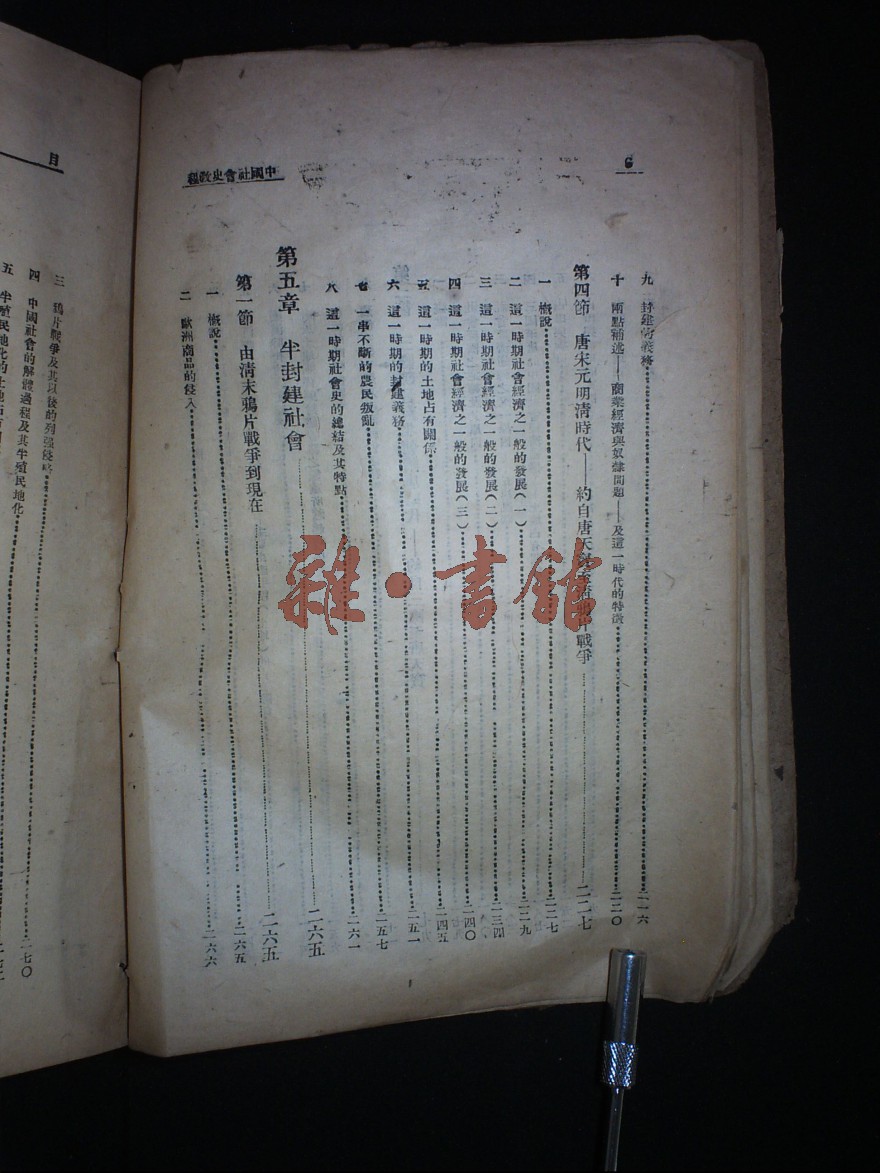 6
中國社會史敎程
九 封建的義務 二一六
十 兩點補述——商業經濟與奴隸問題——及這一時代的特徵 二二〇
第四節 唐宋元明清時代——約自唐天 片戰爭 二二七
一 概說 二二七
二 這一時期社會經濟之一般的發展(一) 二二九
三 這一時期社會經濟之一般的發展(二) 二三四
四 這一時期社會經濟之一般的發展(三) 二四〇
五 這一時期的土地占有關係 二四五
六 這一時期的封建義務 二五一
一串不斷的農民叛亂 二五七
八 這一時期社會史的總結及其特點 二六一
第五章 半封建社會 二六五
第一節 由清末鴉片戰爭到現在 二六五
一 概說 二六六
二 歐洲商品的侵入
目
三 鴉片戰爭及其以後的列強侵略
四 中國社會的解體過程及其半殖民地化 二七〇
五 半殖民地化的土地占有
雜·書館